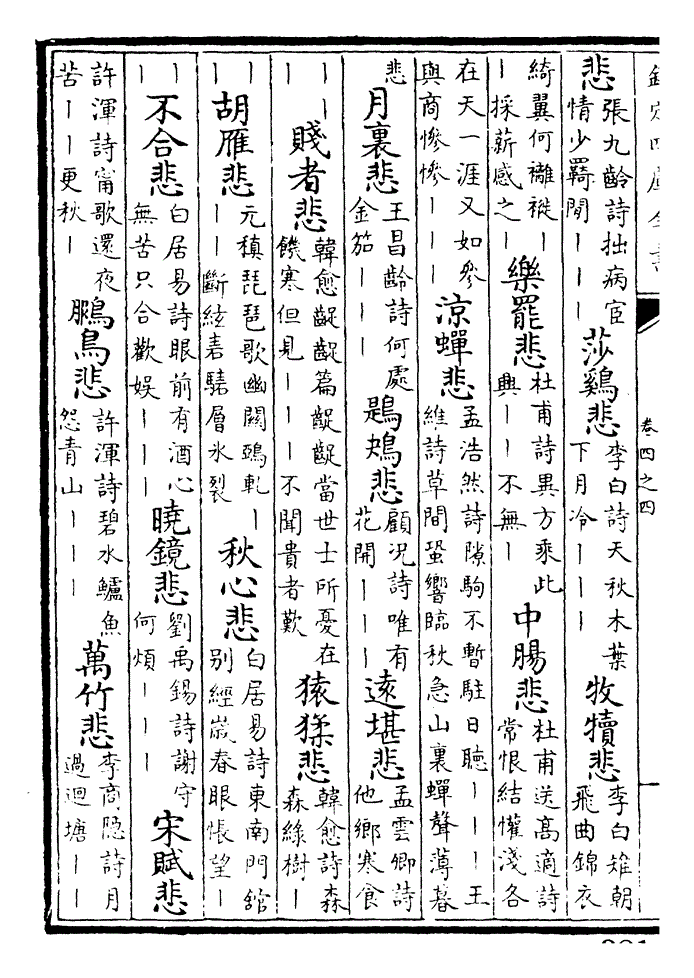 卷四之四
悲張九齡詩拙病宦情少羇閒｜｜｜莎鷄悲李白詩天秋木葉下月冷｜｜｜牧犢悲李白雉朝飛曲錦衣
綺翼何離褷｜｜採薪感之｜樂罷悲杜甫詩異方乘此興｜｜不無｜中腸悲杜甫送高適詩常恨結懽淺各
在天一涯又如參與商慘慘｜｜｜涼蟬悲孟浩然詩隙駒不暫駐日聽｜｜｜王維詩草間蛩響臨秋急山裏蟬聲薄暮
悲月裏悲王昌齡詩何處金笳｜｜｜鶗鴂悲顧況詩唯有花開｜｜｜遠堪悲孟雲卿詩他鄉寒食
｜｜｜賤者悲韓愈齪齪篇齪齪當世士所憂在饑寒但見｜｜｜不聞貴者歎猿猱悲韓愈詩森森綠樹｜
｜｜胡雁悲元稹琵琶歌幽關鵶軋｜｜｜斷絃砉騞層冰裂秋心悲白居易詩東南門館別經歲春眼悵望｜
｜｜不合悲白居易詩眼前有酒心無苦只合歡娛｜｜｜曉鏡悲劉禹錫詩謝守何煩｜｜｜宋賦悲
許渾詩甯歌還夜苦｜｜更秋｜鵬鳥悲許渾詩碧水鱸魚怨青山｜｜｜萬竹悲李商隱詩月過迴塘｜｜